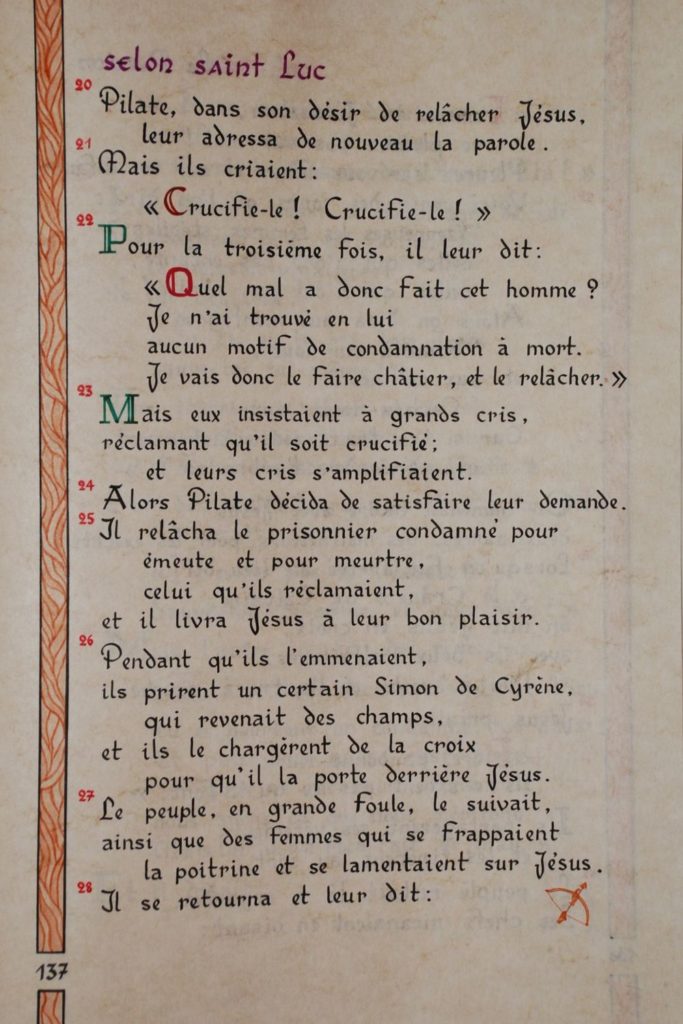 selon saint Luc
20 Pilate, dans son désir de relâcher Jésus,
leur adressa de nouveau la parole.
21 Mais ils criaient:
« Crucifie-le ! Crucifie-le ! »
22 Pour la troisiéme fois, il leur dit:
« Quel mal a donc fait cet homme ?
Je n'ai trouvé en lui
aucun motif de condamnation à mort.
Je vais donc le faire châtier, et le relâcher. »
23 Mais eux insistaient à grands cris,
réclamant qu'il soit crucifié;
et leurs cris s'amplifiaient.
24 Alors Pilate décida de satisfaire leur demande.
25 Il relâcha le prisonnier condamné pour
émeute et pour meurtre,
celui qu'ils réclamaient,
et il livra Jésus à leur bon plaisir.
26 Pendant qu'ils l'emmenaient,
ils prirent un certain Simon de Cyrène,
qui revenait des champs,
et ils le chargèrent de la croix
pour qu'il la porte derrière Jésus.
27 Le peuple, en grande foule, le suivait,
ainsi que des femmes qui se frappaient
la poitrine et se lamentaient sur Jésus.
28 Il se retourna et leur dit:
137